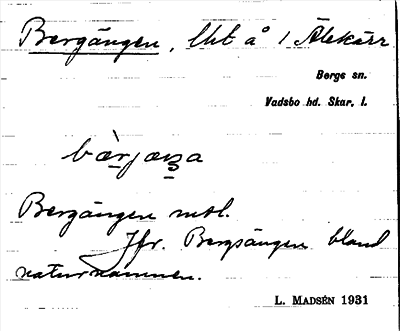 Bergängen, Ut å 1 Älekärr
Bergs sn.
Vadsbo hd. Skar. l.
Bergängen mtl.
Jfr. Bergsängen bland
naturnamnen.
L. MADSÉN 1931